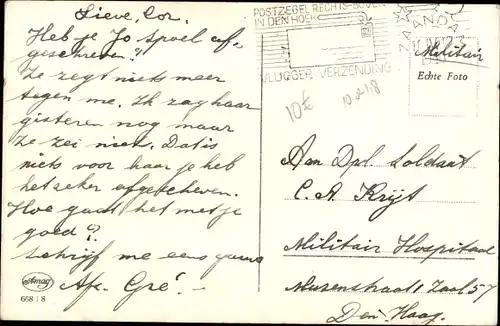 Lieve, Cor.
Heb je Jo Spoel af-
geschreven?
Ze zegt niets meer
tegen me. Ik zag haar
gisteren nog maar
ze zei niet. Dat is
niets voor haar je heb
het zeker afgeschreven.
Hoe gaat het met je
goed?
Schrijf me eens gauw
Afz. Gré! -
Amag
668 | 8
POSTZEGEL RECHTS-BOVEN
IN DEN HOEK
VLUGGER VERZENDING
ZAANDAM
10£
Militair
Echte Foto
Aan Dpl. Soldaat
C. A. Krijt
Militair Hospitaal
Muzenstraat 1 Zaal 57
Den Haag.